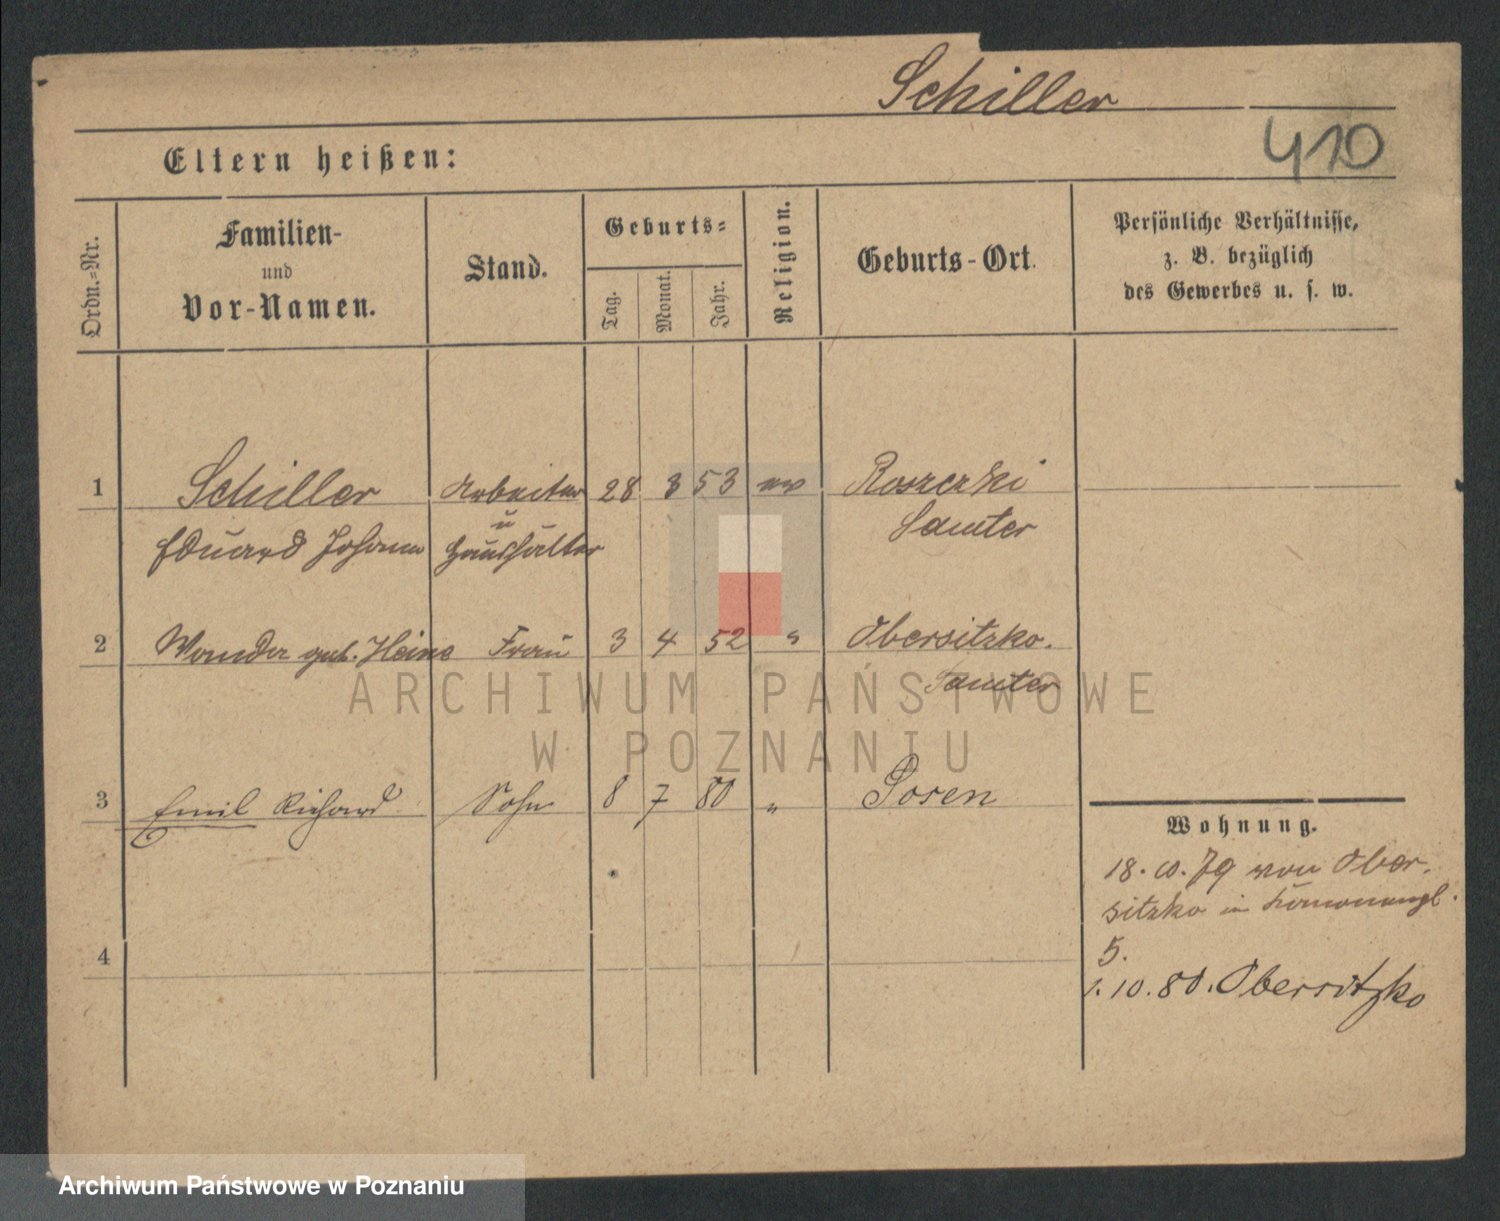 Schiller
410
Eltern heißen:
Ordn.-Nr.
Familien-
und
Vor-Namen.
Stand.
Geburts-
Tag.
Monat.
Jahr.
Religion.
Geburts-Ort.
Persönliche Verhältnisse,
z. B. bezüglich
des Gewerbes u. s. w.
1 Schiller Arbeiter 28 3 53 ev Roszczki
u
Eduard Johann Haushälter Samter
2 Wanda geb. Heine Frau 3 4 52 " Obersitzko.
Samter
ARCHIWUM PAŃSTWOWE
W POZNANIU
3 Emil Richard Sohn 8 7 80 " Posen
Wohnung.
18. 10. 79 von Ober-
sitzko in
4
5.
1.10.80. Obersitzko
Archiwum Państwowe w Poznaniu